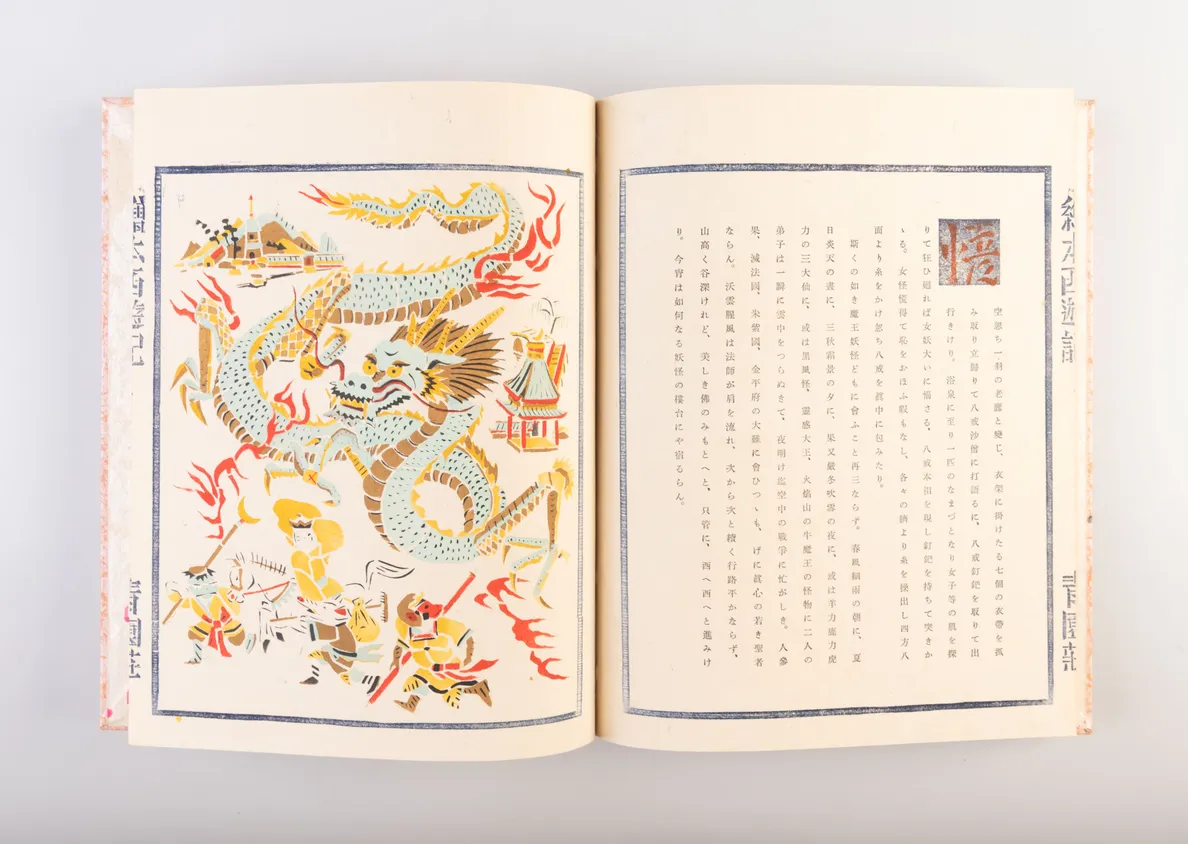 悟
空忽ち一羽の老鷹と變じ、衣架に掛けたる七個の衣帶を抓
み取り立歸りて八戒沙僧に打語るに、八戒釘鈀を取りて出
行きけり。浴泉に至り一匹のなまづとなり女子等の肌を探
りて狂ひ廻れば女妖大いに惱さる、八戒本相を現し釘鈀を持ちて突きか
ゝる。女怪慌得て恥をおほふ暇もなし、各々の臍より糸を操出し四方八
面より糸をかけ忽ち八戒を眞中に包みたり。
斯くの如き魔王妖怪どもに會ふこと再三ならず。春風細雨の朝に、夏
日炎天の晝に、三秋霜景の夕に、果又嚴冬吹雪の夜に、或は羊力鹿力虎
力の三大仙に、或は黑風怪、靈感大王、火焰山の牛魔王の怪物に二人の
弟子は一瞬に雲中をつらぬきて、夜明け迄空中の戰爭に忙がしき。人參
果、滅法國、朱紫國、金平府の大難に會ひつゝも、げに眞心の若き聖者
ならん。沃雲腥風は法師が肩を流れ、次から次と續く行路平かならず、
山高く谷深けれど、美しき佛のみもとへと、只管に、西へ西へと進みけ
り。今宵は如何なる妖怪の樓台にや宿るらん。